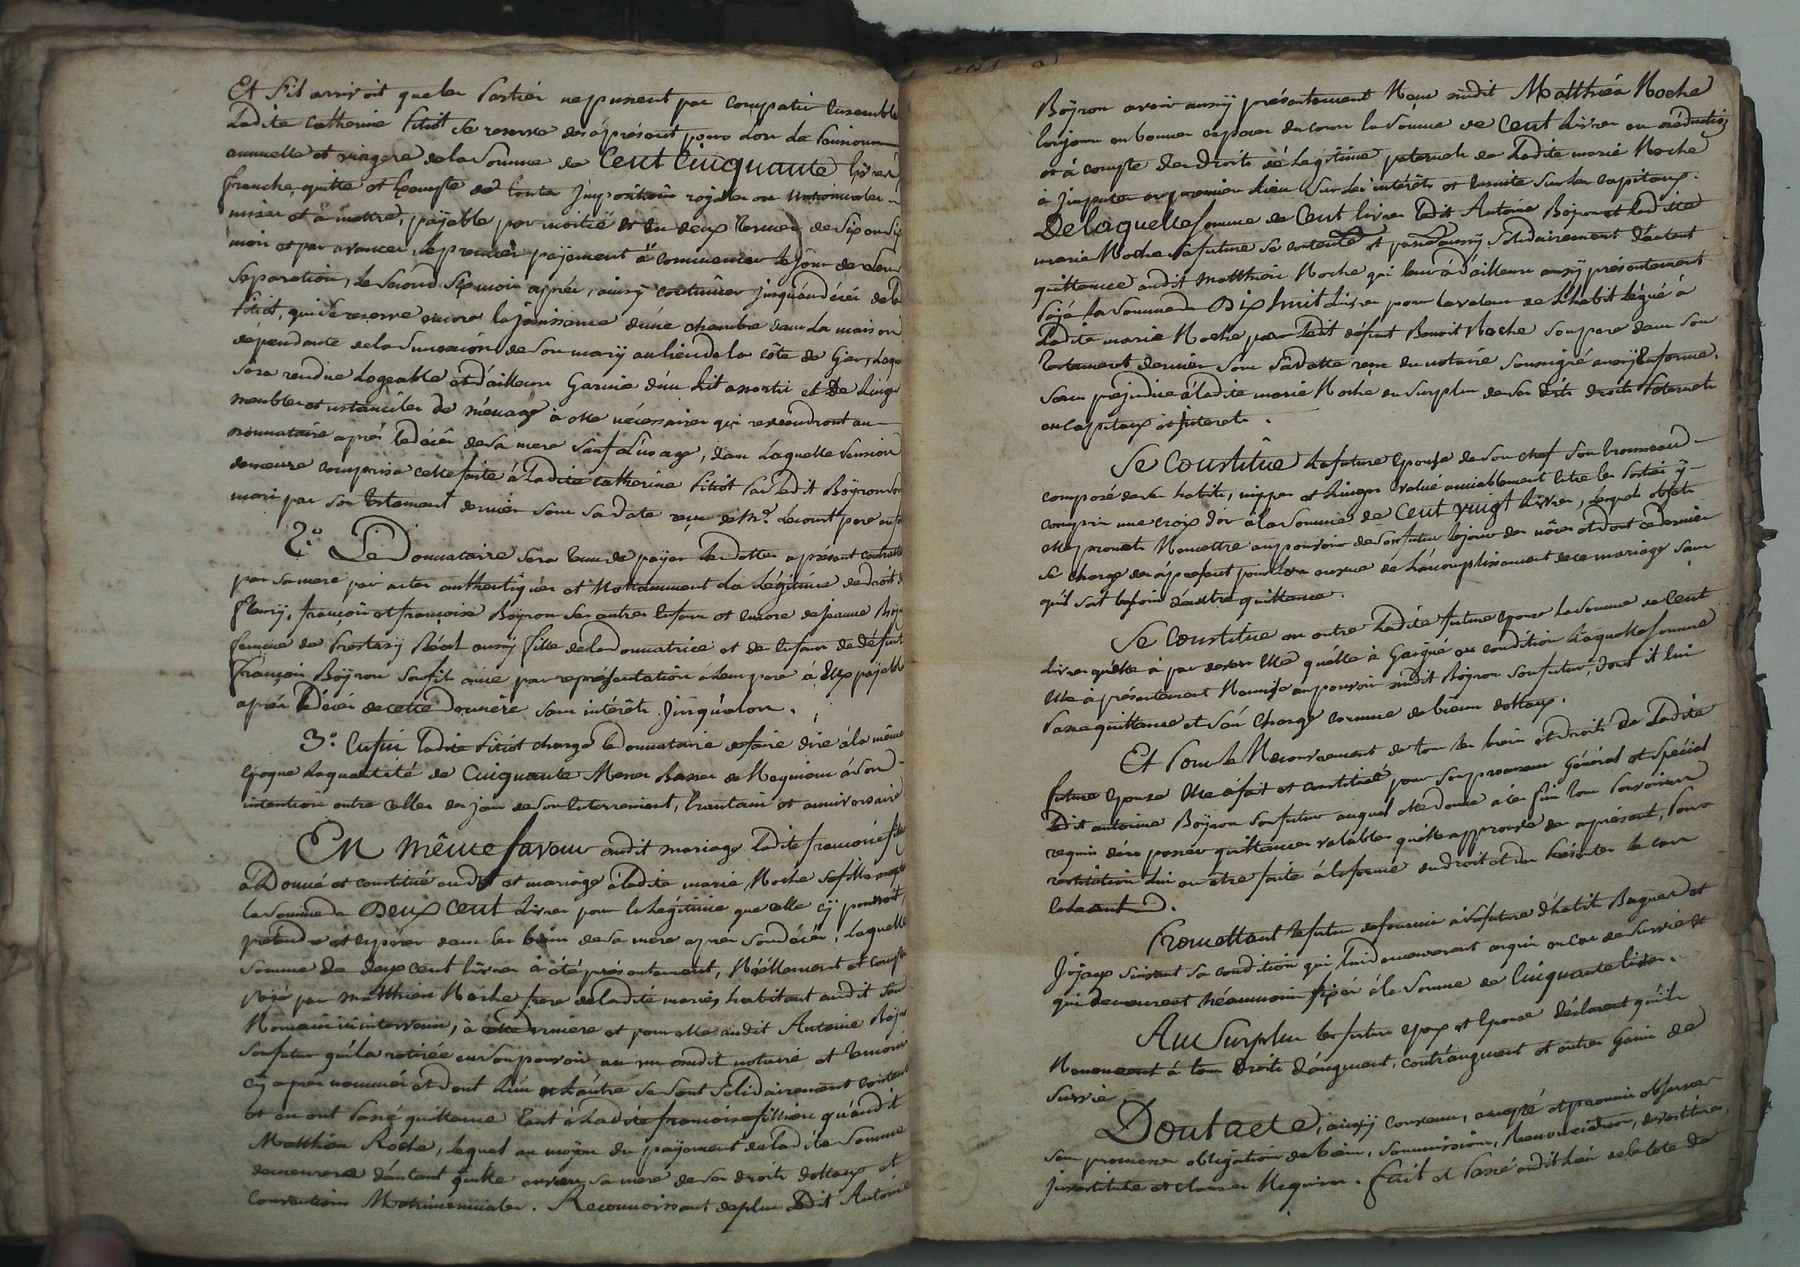 Et s'il arrivoit que les parties ne pussent pas compatir ensemble
Ladite Catherine Pitiot se reserve dès àprésent pour lors La pension
annuelle et viagere de la somme de Cent Cinquante livres
franche quitte et exempte de toute impositions royales ou
mises et à mettre, payable par moitié et en deux termes de six en six
mois et par avance, le premier payement à commencer le jour de leur
separation, le second six mois après, ainsy continuer jusqu'au décès de la
Pitiot, qui se reserve encore la jouissance d'une chambre dans La maison
dépendante de la succession de son mary au lieu de la côte de
sera rendue Logeable et d'ailleurs Garnie d'un Lit assortis et De Linge
meubles et ustanciles de ménage à elle nécessaires qui reviendront au
donnataire après le décès de sa mere sauf L'usage, dans Laquelle pension
demeure comprise celle faite à Ladite Catherine Pitiot par Ledit Boyron son
mari par son testament dernier sous sa date reçu de Me. Lecourt pere
2.° Le Donnataire sera tenu de payer les dettes à présent contractées
par sa mere par actes authentiques et Notamment La Légitime de droit
fleury, françois et françoise Boyron ses autres enfans et encore de jeanne Boyron
femme de Real aussy fille de la Donnatrice et de enfans de défunt
françois Boyron son fils ainé par représentation de leur pere à Eux payable
après le Décès de cette Derniere sans intérêts jusqu'alors.
3.° Enfin Ladite Pitiot charge le donnataire de faire dire à la même
Epoque La quantité de Cinquante Messes Basses de Requiem à son
intention outre celles du jour de son Enterrement, trantain et anniversaire
En même faveur dudit mariage Ladite francoise fillion
à Donné et constitué en dot et mariage à Ladite marie Roche sa fille
la somme de Deux Cent Livres pour la Légitime que elle cy pouvoit
prétendre et espérer dans les biens de sa mere après son décès, Laquelle
somme de deux cent livres à été présentement, Réellement et
payé par matthieu Roche frere de Ladite marie, habitant audit
Romain ici intervenu, à cette derniere et pour elle audit Antoine Boyron
son futur qui la retirée en son pouvoir au vu dudit notaire et temoins
cy après nommés et dont L'un et L'autre se sont solidairement contentés
et en ont passé quittance tant à Ladite francoise fillion qu'audit
Matthieu Roche, Lequel au moyen du payement de Ladite somme
demeurera d'autant quitte envers sa mere de ses droits dottaux et
conventions Matrimoniales. Reconnoissant de plus Ledit Antoine
Boyron avoir aussy présentement Reçu dudit Matthieu Roche
toujours en bonnes especes du cours la somme de Cent Livres en déduction
et à compte des Droits de Légitime paternels de Ladite marie Roche
à imputer en premier Lieu sur les intérêts et ensuite sur les capitaux.
De laquelle somme de Cent livres Ledit Antoine Boyron et Ladite
marie Roche sa future se contente et passe aussy solidairement d'autant
quittance audit Matthieu Roche qui leur à d'ailleurs aussy présentement
payé la somme de Dix huit Livres pour la valeur de L'habit Légué à
Ladite marie Roche par Ledit défunt Benoit Roche son pere dans son
testament dernier sous sa datte reçu du notaire soussigné aussy En forme.
sans préjudice à Ladite marie Roche du surplus de ses dits droits Paternels
en Capitaux et jnterets.
Se Constitue La future Epouse de son chef son trousseau
composé de ses habits, nippes et Linges evalué amiablement entre les parties y
compris une croix d'or à la somme de Cent vingt Livres, Lesquels objets
elle promet Remettre au pouvoir de son futur le jour des nôces et dont ce dernier
se charge dès àprésent pour lors en vue de L'accomplissement de ce mariage sans
qu'il soit besoin d'autre quittance.
Se Constitue en outre Ladite future Epouse La somme de Cent
Livres qu'elle à par devers Elle qu'elle à Gaigné en condition Laquelle somme
Elle à présentement Remise au pouvoir dudit Boyron son futur, dont il lui
Passe quittance et s'en charge comme de biens dottaux.
Et pour le Recouvrement de tous les biens et droits de Ladite
future Epouse Elle à fait et constitué pour son procureur Général et spécial
Ledit antoine Boyron son futur auquel elle donne à ces fins tous pouvoirs
requis d'en passer quittances valables qu'elle approuve dès à présent, sous
restitution Lui en être faite à la forme du droit et d'en hésiter le cas
Echeant.
Promettant le futur de fournir à sa future d'habits Bagues et
Joyaux suivant sa condition qui lui demeureront acquis en cas de survie et
qui demeurent Néanmoins fixés à la somme de Cinquante livres.
Au surplus les futurs Epoux et Epouse déclarent qu'ils
Renoncent à tous Droits d'augment, contraugment et autres Gains de
survie
Dont acte, ainsy convenu, accepté et promis observer
sous promesse obligation de biens, soumissions, Renonciation,
et clauses Requises. fait et Passé audit Lieu de la Cote de